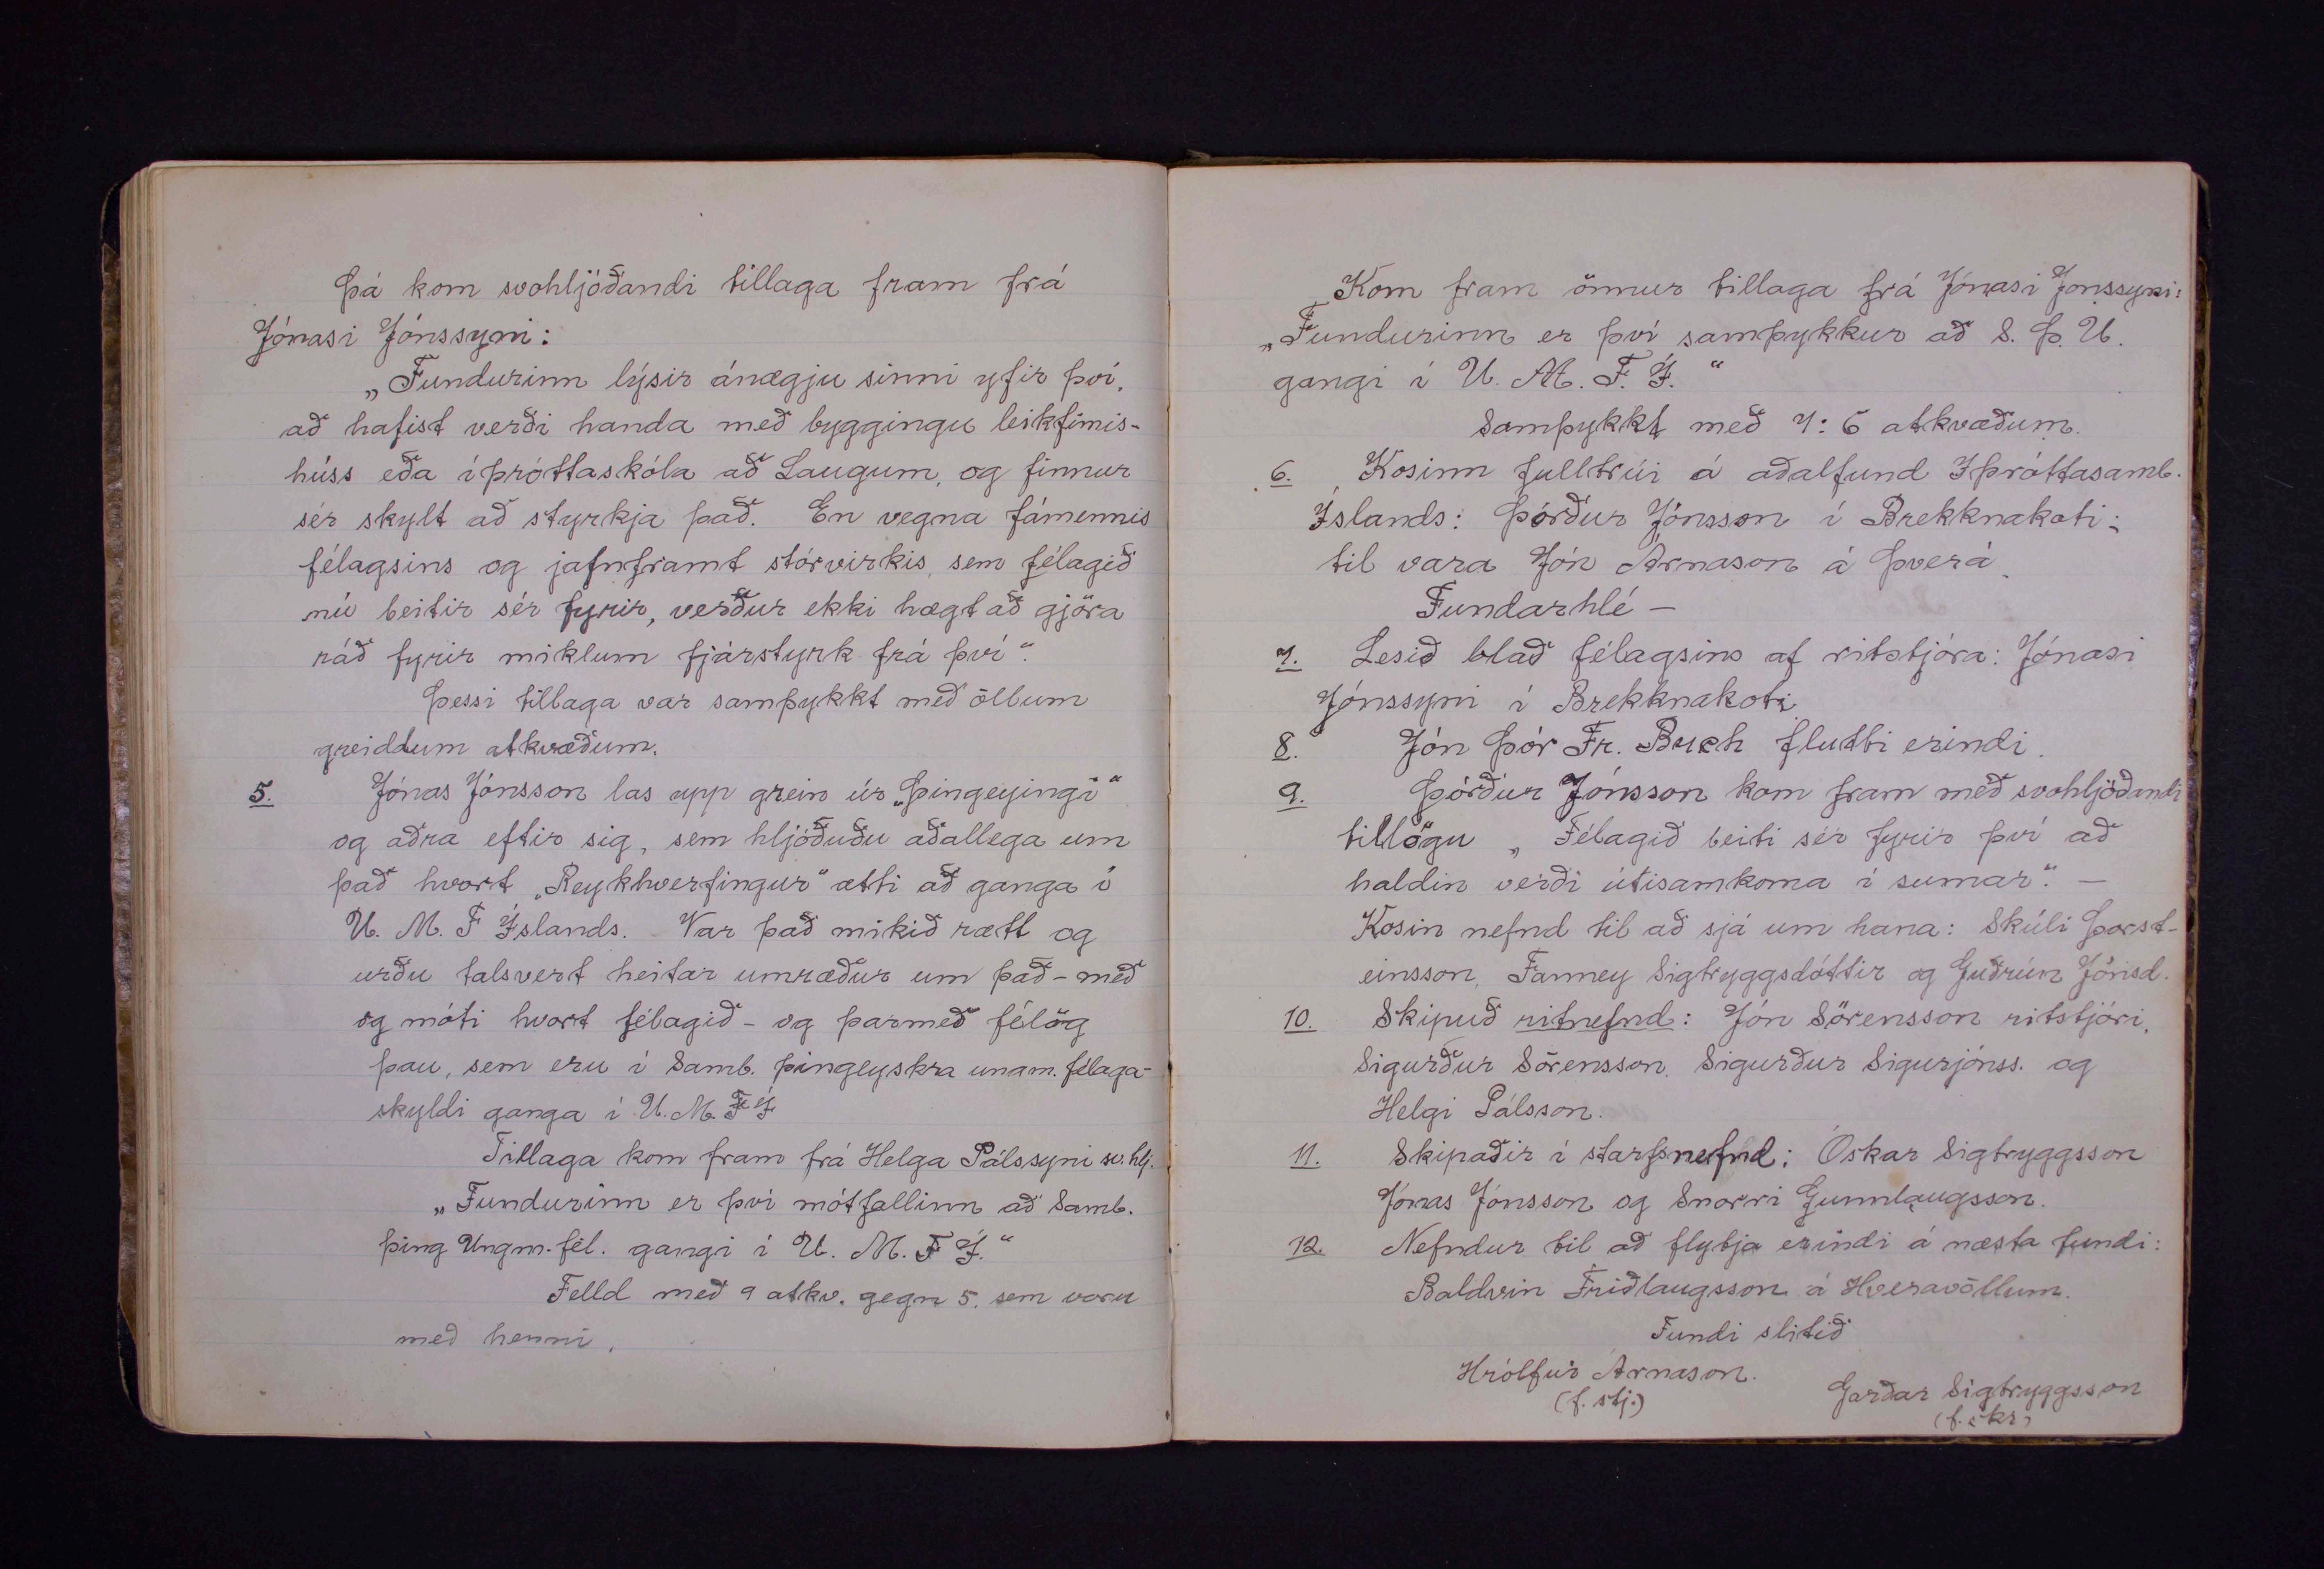 Þá kom svohljóðandi tillaga fram frá
Jónasi Jónssyni:
„Fundurinn lýsir ánægju sinni yfir því,
að hafist verði handa með byggingu leikfimis-
húss eða íþróttaskóla að Laugum, og finnur
sér skylt að styrkja það. En vegna fámennis
félagsins og jafnframt stórvirkis, sem félagið
nú beitir sér fyrir, verður ekki hægt að gjöra
ráð fyrir miklum fjárstyrk frá því“.
Þessi tillaga var samþykkt með öllum
greiddum atkvæðum.
5. Jónas Jónsson las upp grein úr „Þingeyingi“
og aðra eftir sig, sem hljóðuðu aðallega um
það hvort „Reykhverfingur“ ætti að ganga í
U. M. F Íslands. Var það mikið rætt og
urðu talsvert heitar umræður um það - með
og móti hvort félagið - og þarmeð félög
þau, sem eru í Samb. þingeyskra ungm. félaga-
skyldi ganga í U. M. F Í
Tillaga kom fram frá Helga Pálssyni sv. hlj.
„Fundurinn er því mótfallinn að Samb.
þing. Ungm. fél. gangi í U. M. F Í.“
Felld með 9 atkv. gegn 5. sem voru
með henni.
Kom fram önnur tillaga frá Jónasi Jonssyni:
„Fundurinn er því samþykkur að S. Þ. U.
gangi í U. M. F. Í.“
Samþykkt með 7:6 atkvæðum.
6. Kosinn fulltrúi á aðalfund Iþróttasamb.
Íslands: Þórður Jónsson í Brekknakoti;
til vara Jón Árnason á Þverá.
Fundarhlé —
7. Lesið blað félagsins af ritstjóra: Jónasi
Jónssyni í Brekknakoti
8. Jón Þór Fr. Buch flutti erindi.
9. Þórður Jónsson kom fram með svohljóðandi
tillögu „Félagið beiti sér fyrir því að
haldin verði útisamkoma í sumar“. —
Kosin nefnd til að sjá um hana: Skúli Þorst-
einsson, Fanney Sigtryggsdóttir og Guðrún Jónsd.
10. Skipuð ritnefnd: Jón Sörensson ritstjóri,
Sigurður Sörensson, Sigurður Sigurjónss. og
Helgi Pálsson.
11. Skipaðir í starfsnefnd: Óskar Sigtryggsson
Jónas Jónsson og Snorri Gunnlaugsson.
12. Nefndur til að flytja erindi á næsta fundi:
Baldvin Friðlaugsson á Hveravöllum.
Fundi slitið
Hrólfur Árnason.
(f. stj.)
Garðar Sigtryggsson
(f. skr)